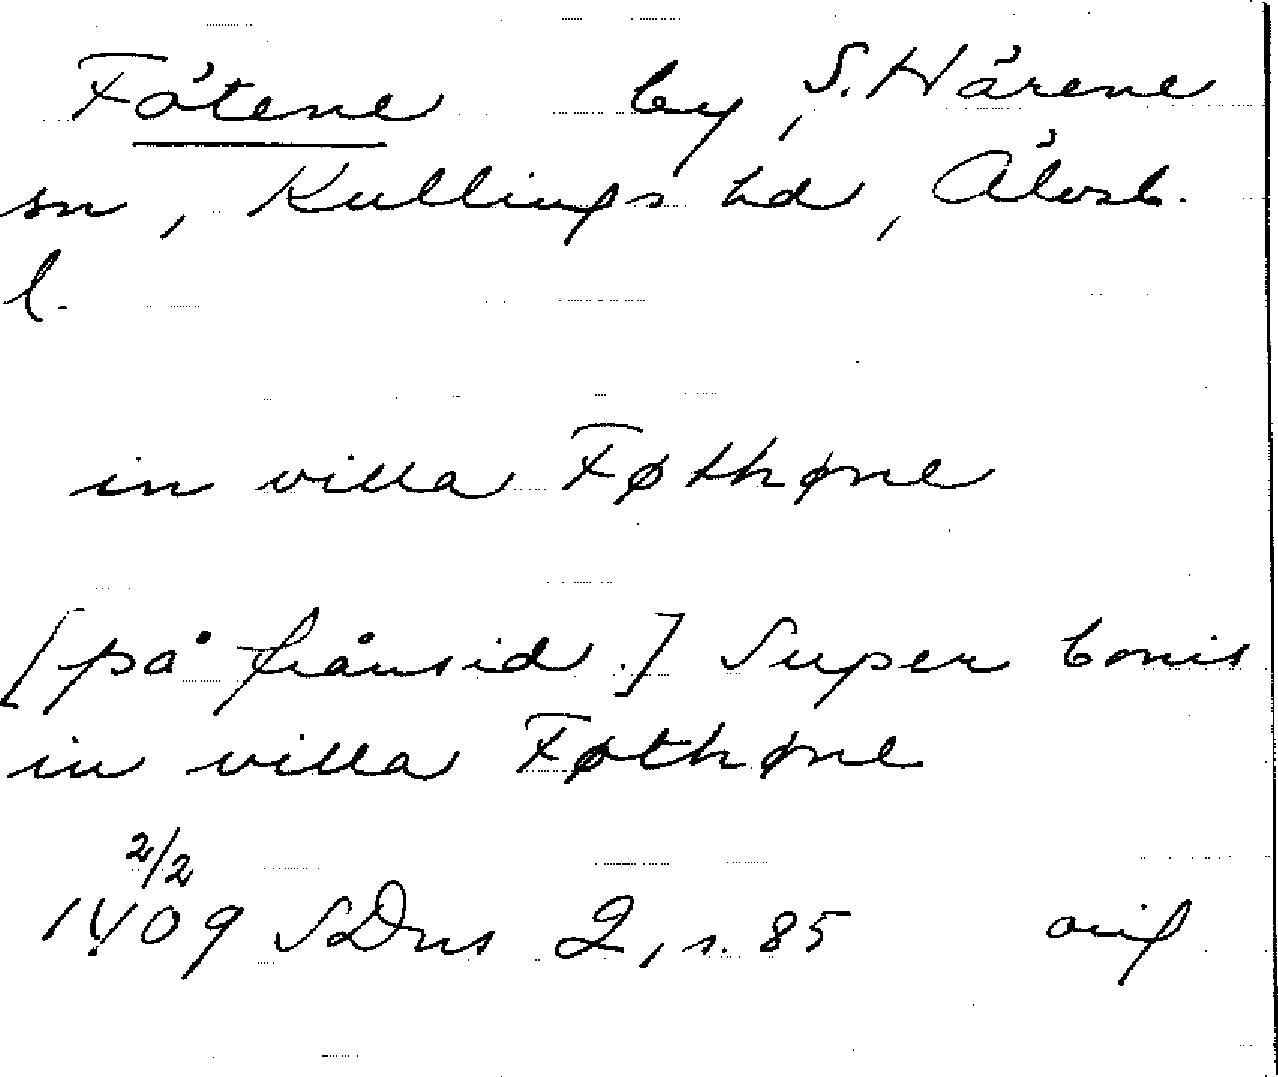 Fåtene by, S. Hårene
sn, Kullings hd, Älvsb.
l.
in villa Føthøne
[på frånsid.] Super bonis
in villa Føthøne
2/2
1409 SDns 2, s. 85 orig